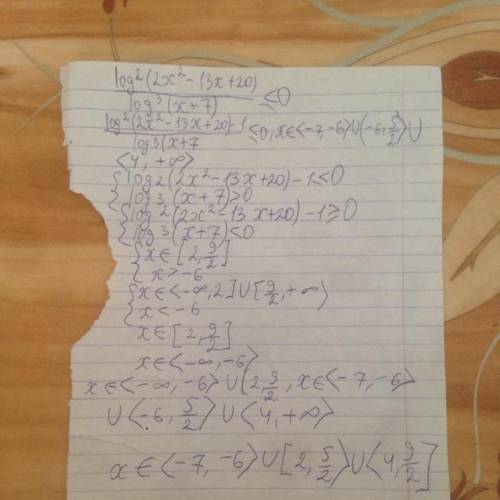 log²(2x² - 13x+20)
/ log³(x+7) ≤0
log²(2x²-13x+20)-1 / log³(x+7 ≤0, x∈<-7,-6>∪(-6,5/2)∪
<4,+∞>
{log2(2x²-13x+20)-1≤0
{log3(x+7)>0
{log2(2x²-13x+20)-1≥0
{log3(x+7)<0
{x∈[2,9/2]
{x>-6
{x∈<-∞,2]∪[9/2,+∞)
{x<-6
x∈[2,9/2]
x∈<-∞,-6>
x∈<-∞,-6)∪[2,9/2, x∈<-7,-6>
∪(-6,5/2)∪<4,+∞)
x∈<-7,-6)∪[2,5/2)∪<4,9/2]